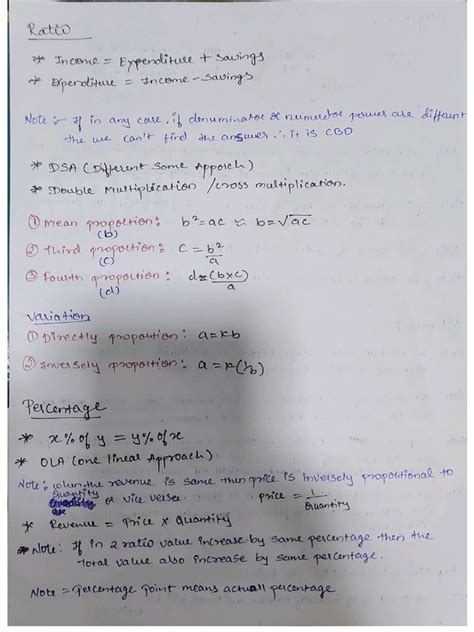 Ratio
* Income = Expenditure + Savings
* Expenditure = Income - Savings
Note :- If in any case, if denuminator & numerator power are different
the we can't find the answer ∴ it is CBD
* DSA (Different Some Approch)
* Double Multiplication / cross multiplication.
① Mean propotion : b² = ac ≈ b = √ac
(b)
② Third propotion : c = b²/a
(c)
③ Fourth propotion : d = (b×c)/a
(d)
Variation
① Directly propotion : a = kb
② Inversely propotion : a = k(1/b)
Percentage
* x% of y = y% of x
* OLA (One lineal Approach)
Note : when the revenue is same then price is inversely propotional to
Quantity or vice versa. price = 1/Quantity
* Revenue = Price × Quantity
* Note : If in 2 ratio value increase by same percentage then the
total value also increase by same percentage.
Note = Percentage point means actuall percentage